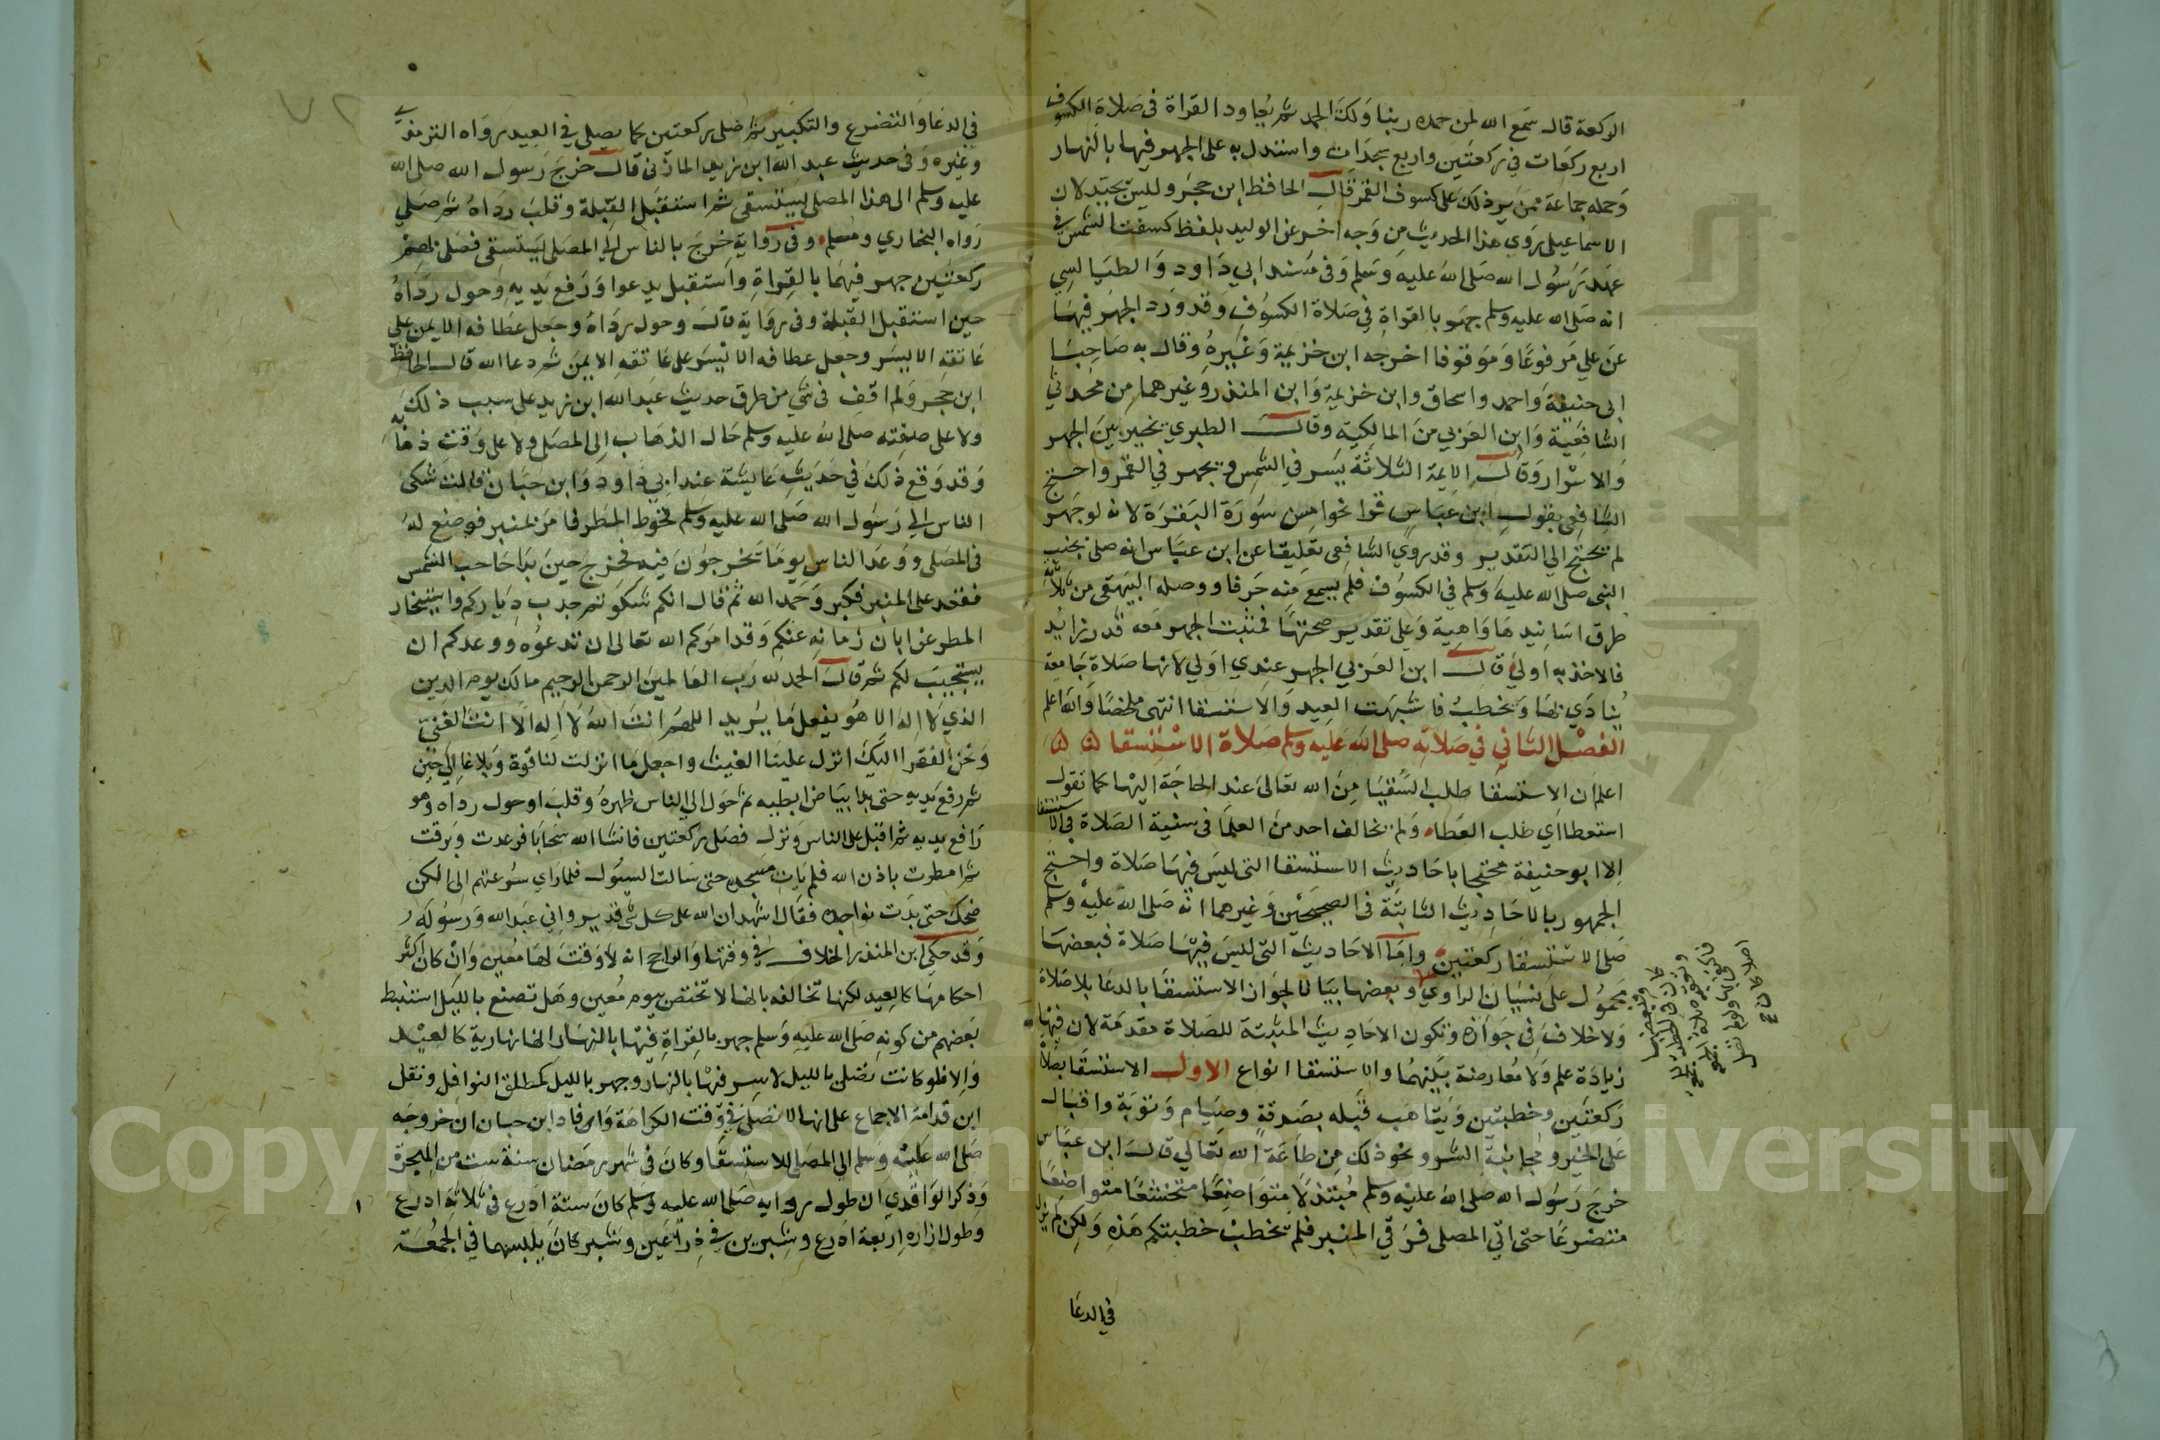 الركعة قال سمع الله لمن حمده ربنا ولك الحمد ثم يعاود القراة في صلاة الكسوف
اربع ركعات في ركعتين واربع سجدات واستدل به على الجهر فيها بالنهار
وحمله جماعة ممن لم ير ذلك على كسوف القمر قال الحافظ ابن حجر وليس بجيد لان
الاسماعيلى روي هذا الحديث من وجه اخر عن الوليد بلفظ كسفت الشمس في
عهد رسول الله صلى الله عليه وسلم وفى مسند ابي داود والطيالسي
انه صلى الله عليه وسلم جهر بالقراة في صلاة الكسوف وقد ورد الجهر فيها
عن علي مرفوعا وموقوفا اخرجه ابن خزيمة وغيره وقال به صاحبا
ابى حنيفة واحمد واسحاق وابن خزيمة وابن المنذر وغيرهما من محدثي
الشافعية وابن العربي من المالكية وقال الطبري يخير بين الجهر
والاسرار وقال الايمة الثلاثة يسر في الشمس ويجهر في القمر واحتج
الشافعى بقول ابن عباس قرا نحوا من سورة البقرة لانه لو جهر
لم يحتج الي التقدير وقد روي الشافعى تعليقا عن ابن عباس انه صلى بجنب
النبى صلى الله عليه وسلم في الكسوف فلم يسمع منه حرفا ووصله البيهقى من ثلاثة
طرق اسانيدها واهية وعلى تقدير صحتها فمثبت الجهر معه قدر زايد
فالاخذ به اولي قال ابن العربي الجهر عندي اولي لانها صلاة جامعة
ينادي لها ويخطب فاشبهت العيد والاستسقا انتهى ملخصا والله اعلم
الفصل الثاني في صلاته صلى الله عليه وسلم صلاة الاستسقا ه ه
اعلم ان الاستسقا طلب السقيا من الله تعالى عند الحاجة اليها كما تقول
استعطا اي طلب العطاء ولم يخالف احد من العلما فى سنية الصلاة في الاستسقا
الا ابو حنيفة محتجا باحاديث الاستسقا التى ليس فيها صلاة واحتج
الجمهور بالاحاديث الثابتة فى الصحيحين وغيرهما انه صلى الله عليه وسلم
صلى الاستسقا ركعتين واما الاحاديث التى ليس فيها صلاة فبعضها
محمول على نسيان الراوي وبعضها بيانا لجواز الاستسقا بالدعا بلا صلاة
ولا خلاف في جوازه وتكون الاحاديث المثبتة للصلاة مقدمة لان فيها
زيادة علم ولا معارضة بينهما والاستسقا انواع الاول الاستسقا بصلاة
ركعتين وخطبتين ويتاهب قبله بصدقة وصيام وتوبة واقبال
على الخير ومجانبة الشر ونحو ذلك من طاعة الله تعالي قال ابن عباس
خرج رسول الله صلى الله عليه وسلم مبتذلا متواضعا متخشعا متواضعا
متضرعا حتى اتي المصلى فرقي المنبر فلم يخطب خطبتكم هذه ولكن لم يزل
في الدعا
في الدعا والتضرع والتكبير ثم صلى ركعتين كما يصلي في العيد رواه الترمذي
وغيره وفى حديث عبد الله ابن زيد المازنى قال خرج رسول الله صلى الله
عليه وسلم الى هذا المصلى ليستسقى ثم استقبل القبلة وقلب رداه ثم صلي
رواه البخاري ومسلم وفى رواية خرج بالناس الي المصلى ليستسقى فصلى بهم
ركعتين جهر فيهما بالقراة واستقبل يدعوا ورفع يديه وحول رداه
حين استقبل القبلة وفى رواية قال وحول رداه وجعل عطافه الايمن على
عاتقه الايسر وجعل عطافه الايسر على عاتقه الايمن ثم دعا الله قال الحافظ
ابن حجر ولم اقف فى شي من طرق حديث عبد الله ابن زيد على سبب ذلك
ولا على صفته صلى الله عليه وسلم حال الذهاب الي المصلى ولا على وقت ذهابه
وقد وقع ذلك في حديث عايشة عند ابي داود وابن حبان قالت شكى
الناس الي رسول الله صلى الله عليه وسلم قحوط المطر فامر بمنبر فوضع له
في المصلى ووعد الناس يوما يخرجون فيه فخرج حين بدا حاجب الشمس
فقعد على المنبر فكبر وحمد الله ثم قال انكم شكوتم جدب دياركم واستيخار
المطر عن ابان زمانه عنكم وقد امركم الله تعالى ان تدعوه ووعدكم ان
يستجيب لكم ثم قال الحمد لله رب العالمين الرحمن الرحيم مالك يوم الدين
الذي لا اله الا هو يفعل ما يريد اللهم انت الله لا اله الا انت الغني
ونحن الفقرا اليك انزل علينا الغيث واجعل ما انزلت لنا قوة وبلاغا الي حين
ثم رفع يديه حتى بدا بياض ابطيه ثم حول الي الناس ظهره وقلب او حول رداه وهو
رافع يديه ثم اقبل على الناس ونزل فصلى ركعتين فانشا الله سحابا فرعدت وبرقت
ثم امطرت باذن الله فلم يات مسجده حتى سالت السيول فلما راي سرعتهم الي الكن
ضحك حتى بدت نواجده فقال اشهد ان الله على كل شي قدير واني عبد الله ورسوله
وقد حكى ابن المنذر الخلاف في وقتها والراجح انه لا وقت لها معين وان كان اكثر
احكامها كالعيد لكنها تخالفه بانها لا تختص بيوم معين وهل تصنع بالليل استنبط
بعضهم من كونه صلى الله عليه وسلم جهر بالقراة فيها بالنهار انها نهارية كالعيد
والا فلو كانت تصلى بالليل لاسر فيها بالنهار وجهر بالليل كمطلق النوافل ونقل
ابن قدامة الاجماع على انها لا تصلى في وقت الكراهة وافاد ابن حبان ان خروجه
صلى الله عليه وسلم الي المصلى للاستسقا وكان فى شهر رمضان سنة ست من الهجرة
وذكر الواقدي ان طول ردايه صلى الله عليه وسلم كان ستة اذرع فى ثلاثة اذرع
وطول ازاره اربعة اذرع وشبرين في ذراعين وشبر كان يلبسهما في الجمعة
Copyright © King Saud University